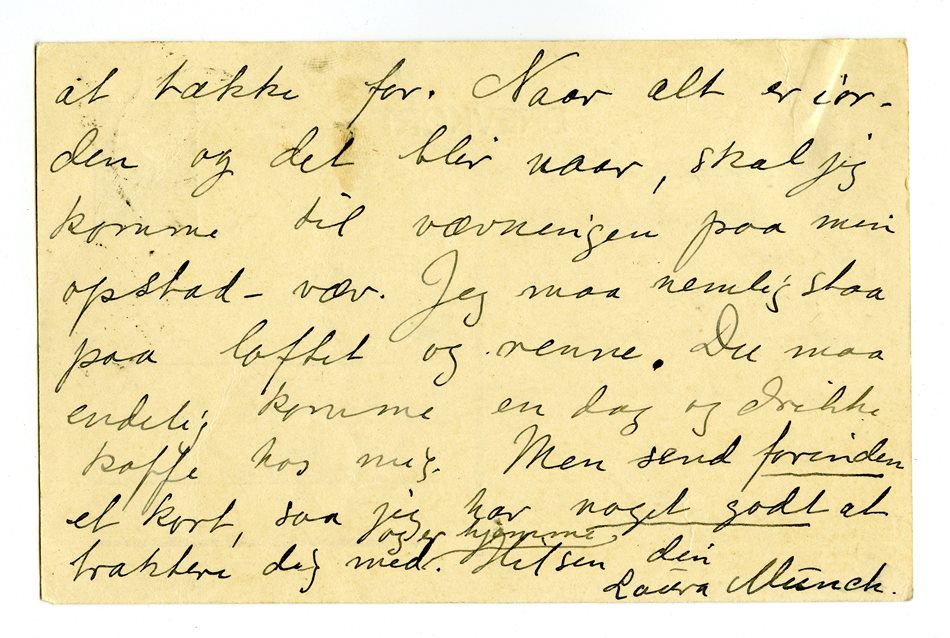 at tække for. Naar alt er ior-
den og det blir vaar, skal jeg
komme til vævningen paa min
opstad-væv. Jeg maa nemlig staa
paa loftet og renne. Du maa
endelig komme en dag og drikke
kaffe hos mig. Men send forinden
et kort, saa jeg har noget godt at
og er hjemme
traktere dig med. Hilsen din
Laura Munch.